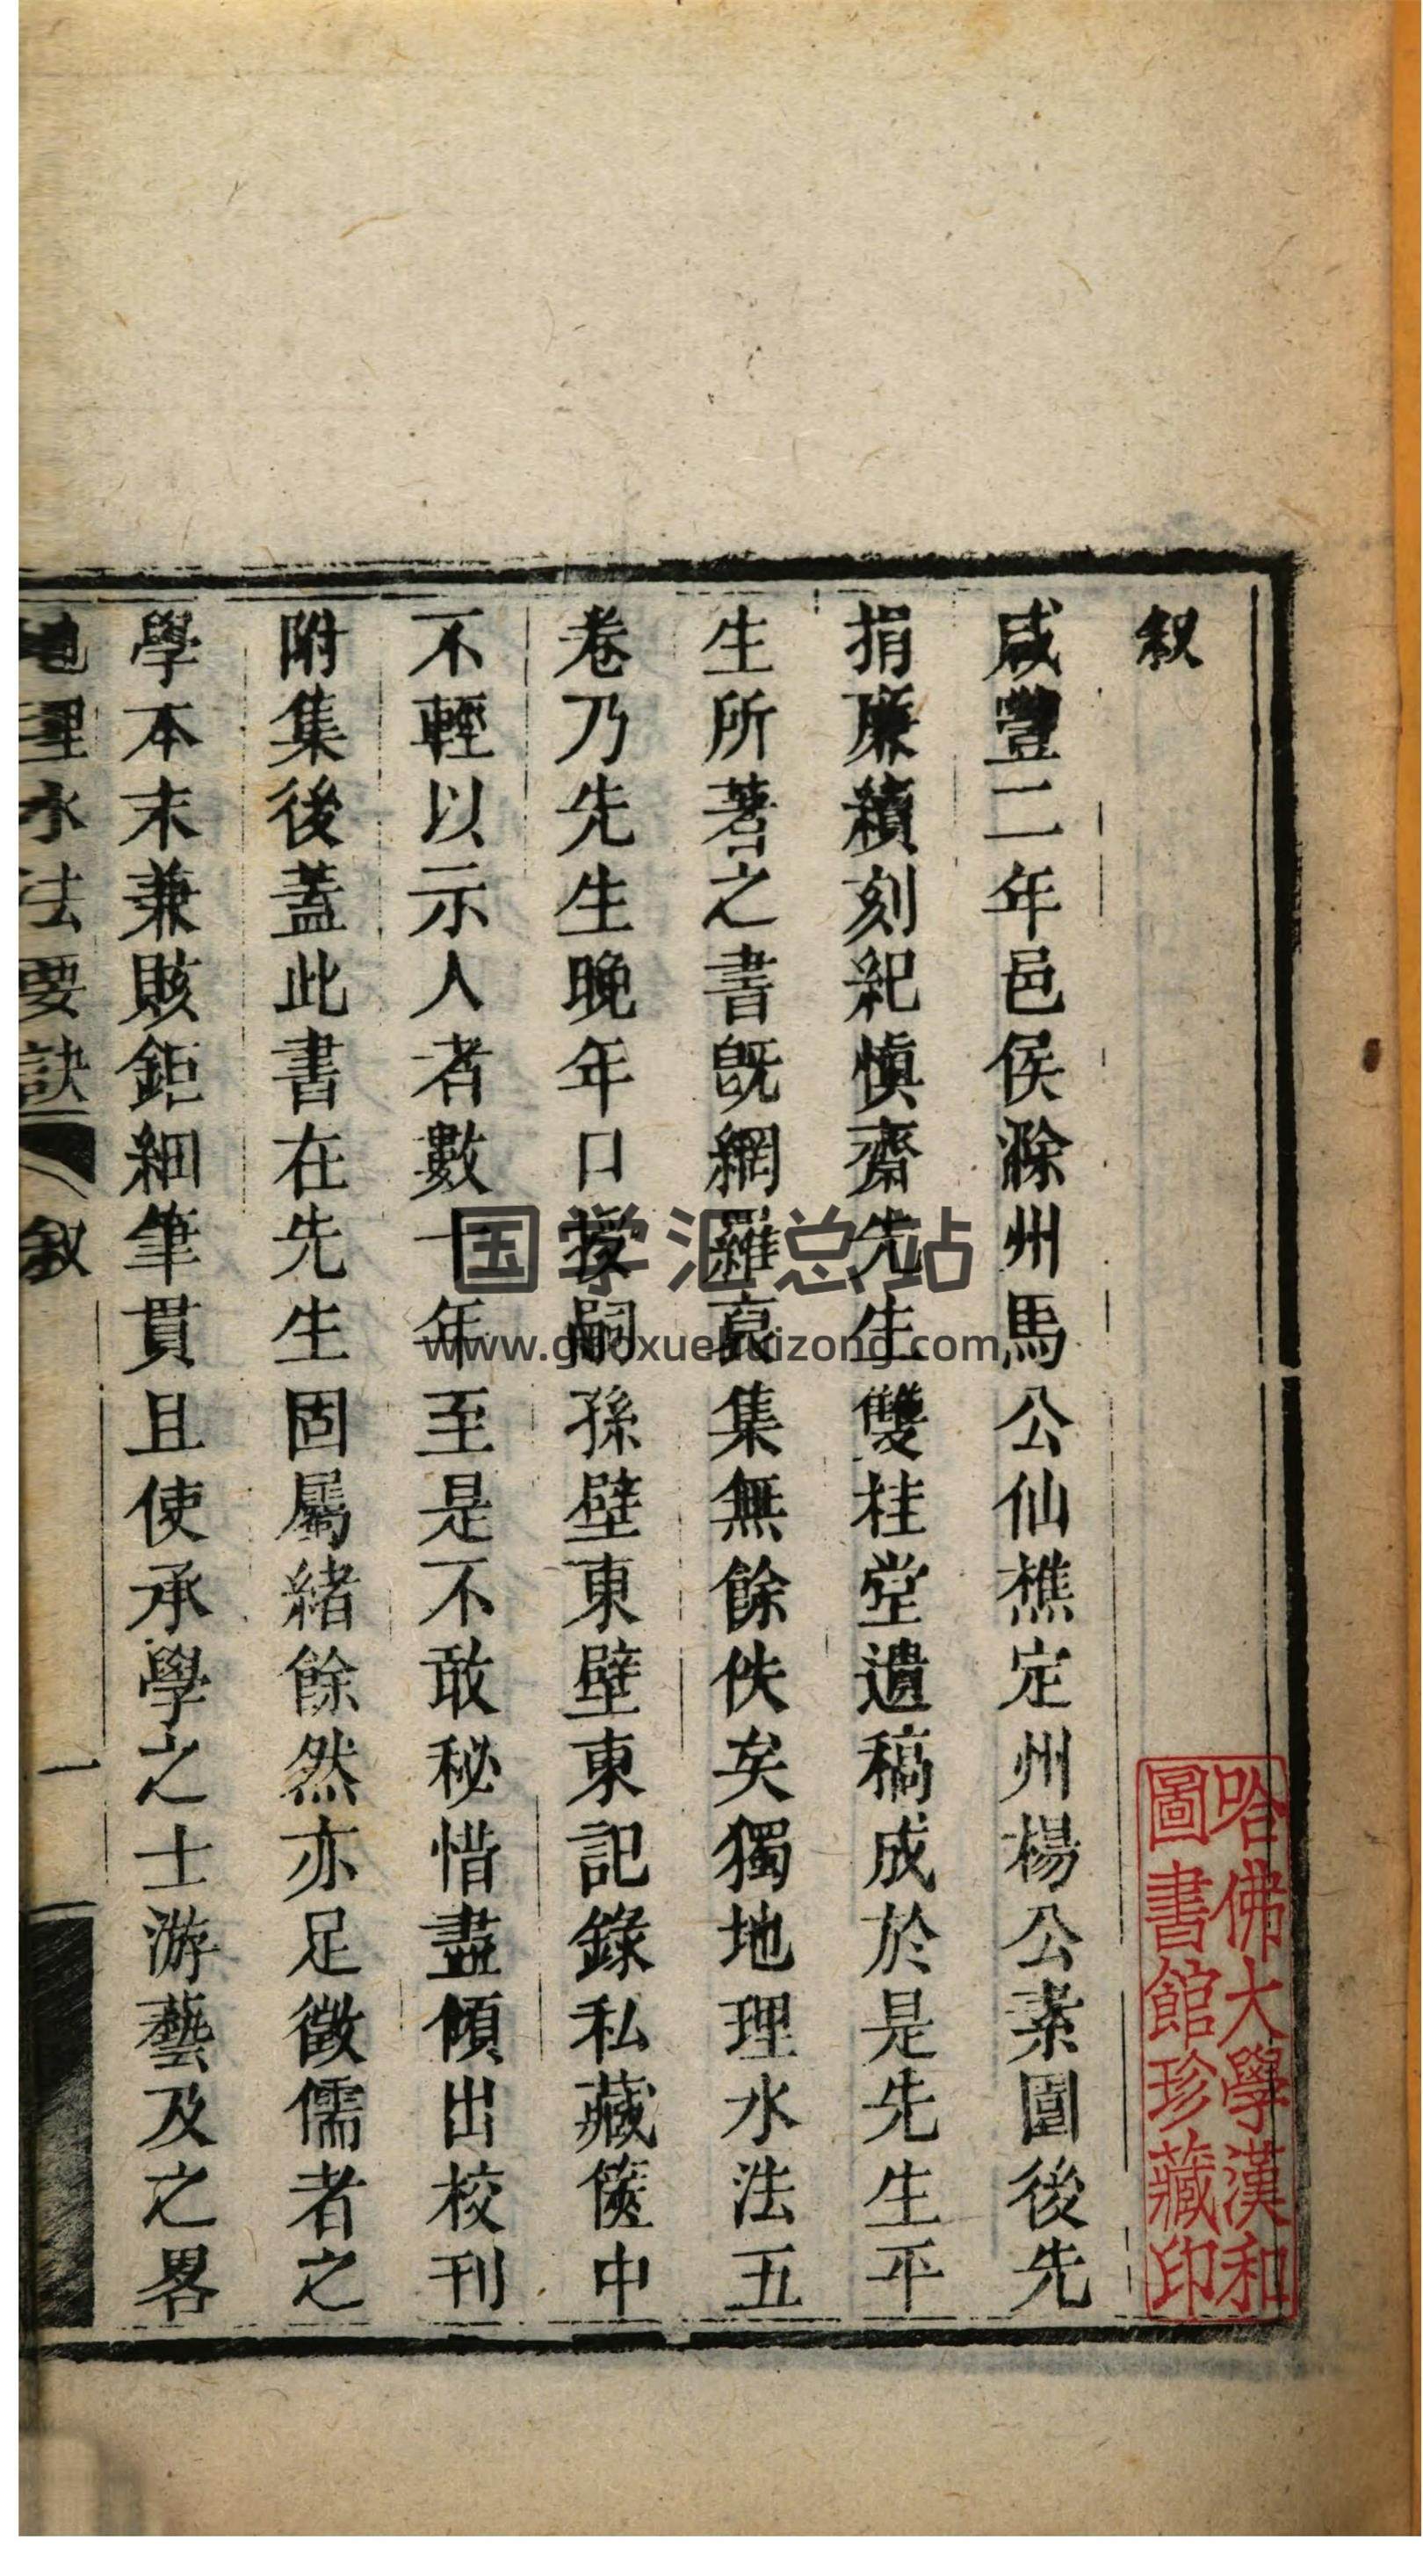 叙
咸豐二年邑侯滁州馬公仙樵定州楊公素園後先
捐廉續刻紀慎齋先生雙桂堂遺稿成於是先生平
生所著之書旣網羅裒集無餘佚矣獨地理水法五
卷乃先生晚年口授嗣孫壁東壁東記錄私藏篋中
不輕以示人者數十年至是不敢秘惜盡傾出校刊
附集後蓋此書在先生固屬緒餘然亦足徵儒者之
學本末兼賅鉅細筆貫且使承學之士游藝及之畧
地理水法要訣
叙
一
哈佛大學漢和
圖書館珍藏印
国学汇总站
www.guoxuehuizong.com